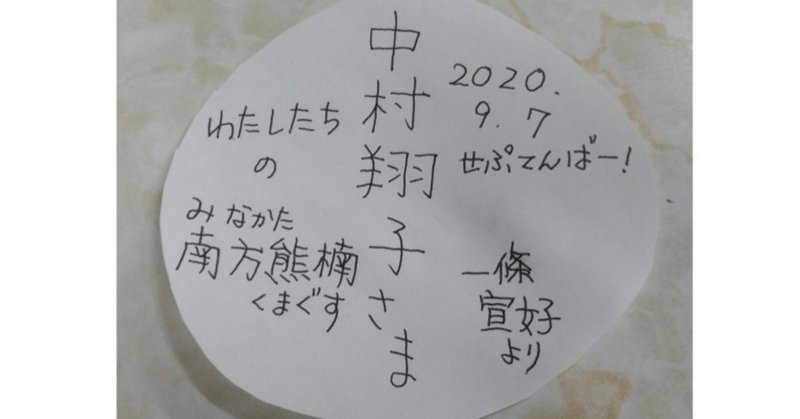 2020.
9.7
せぷてんばー!
中村翔子さま
わたしたち
の
みなかた
南方熊楠
くまぐす
一條
宣好
より